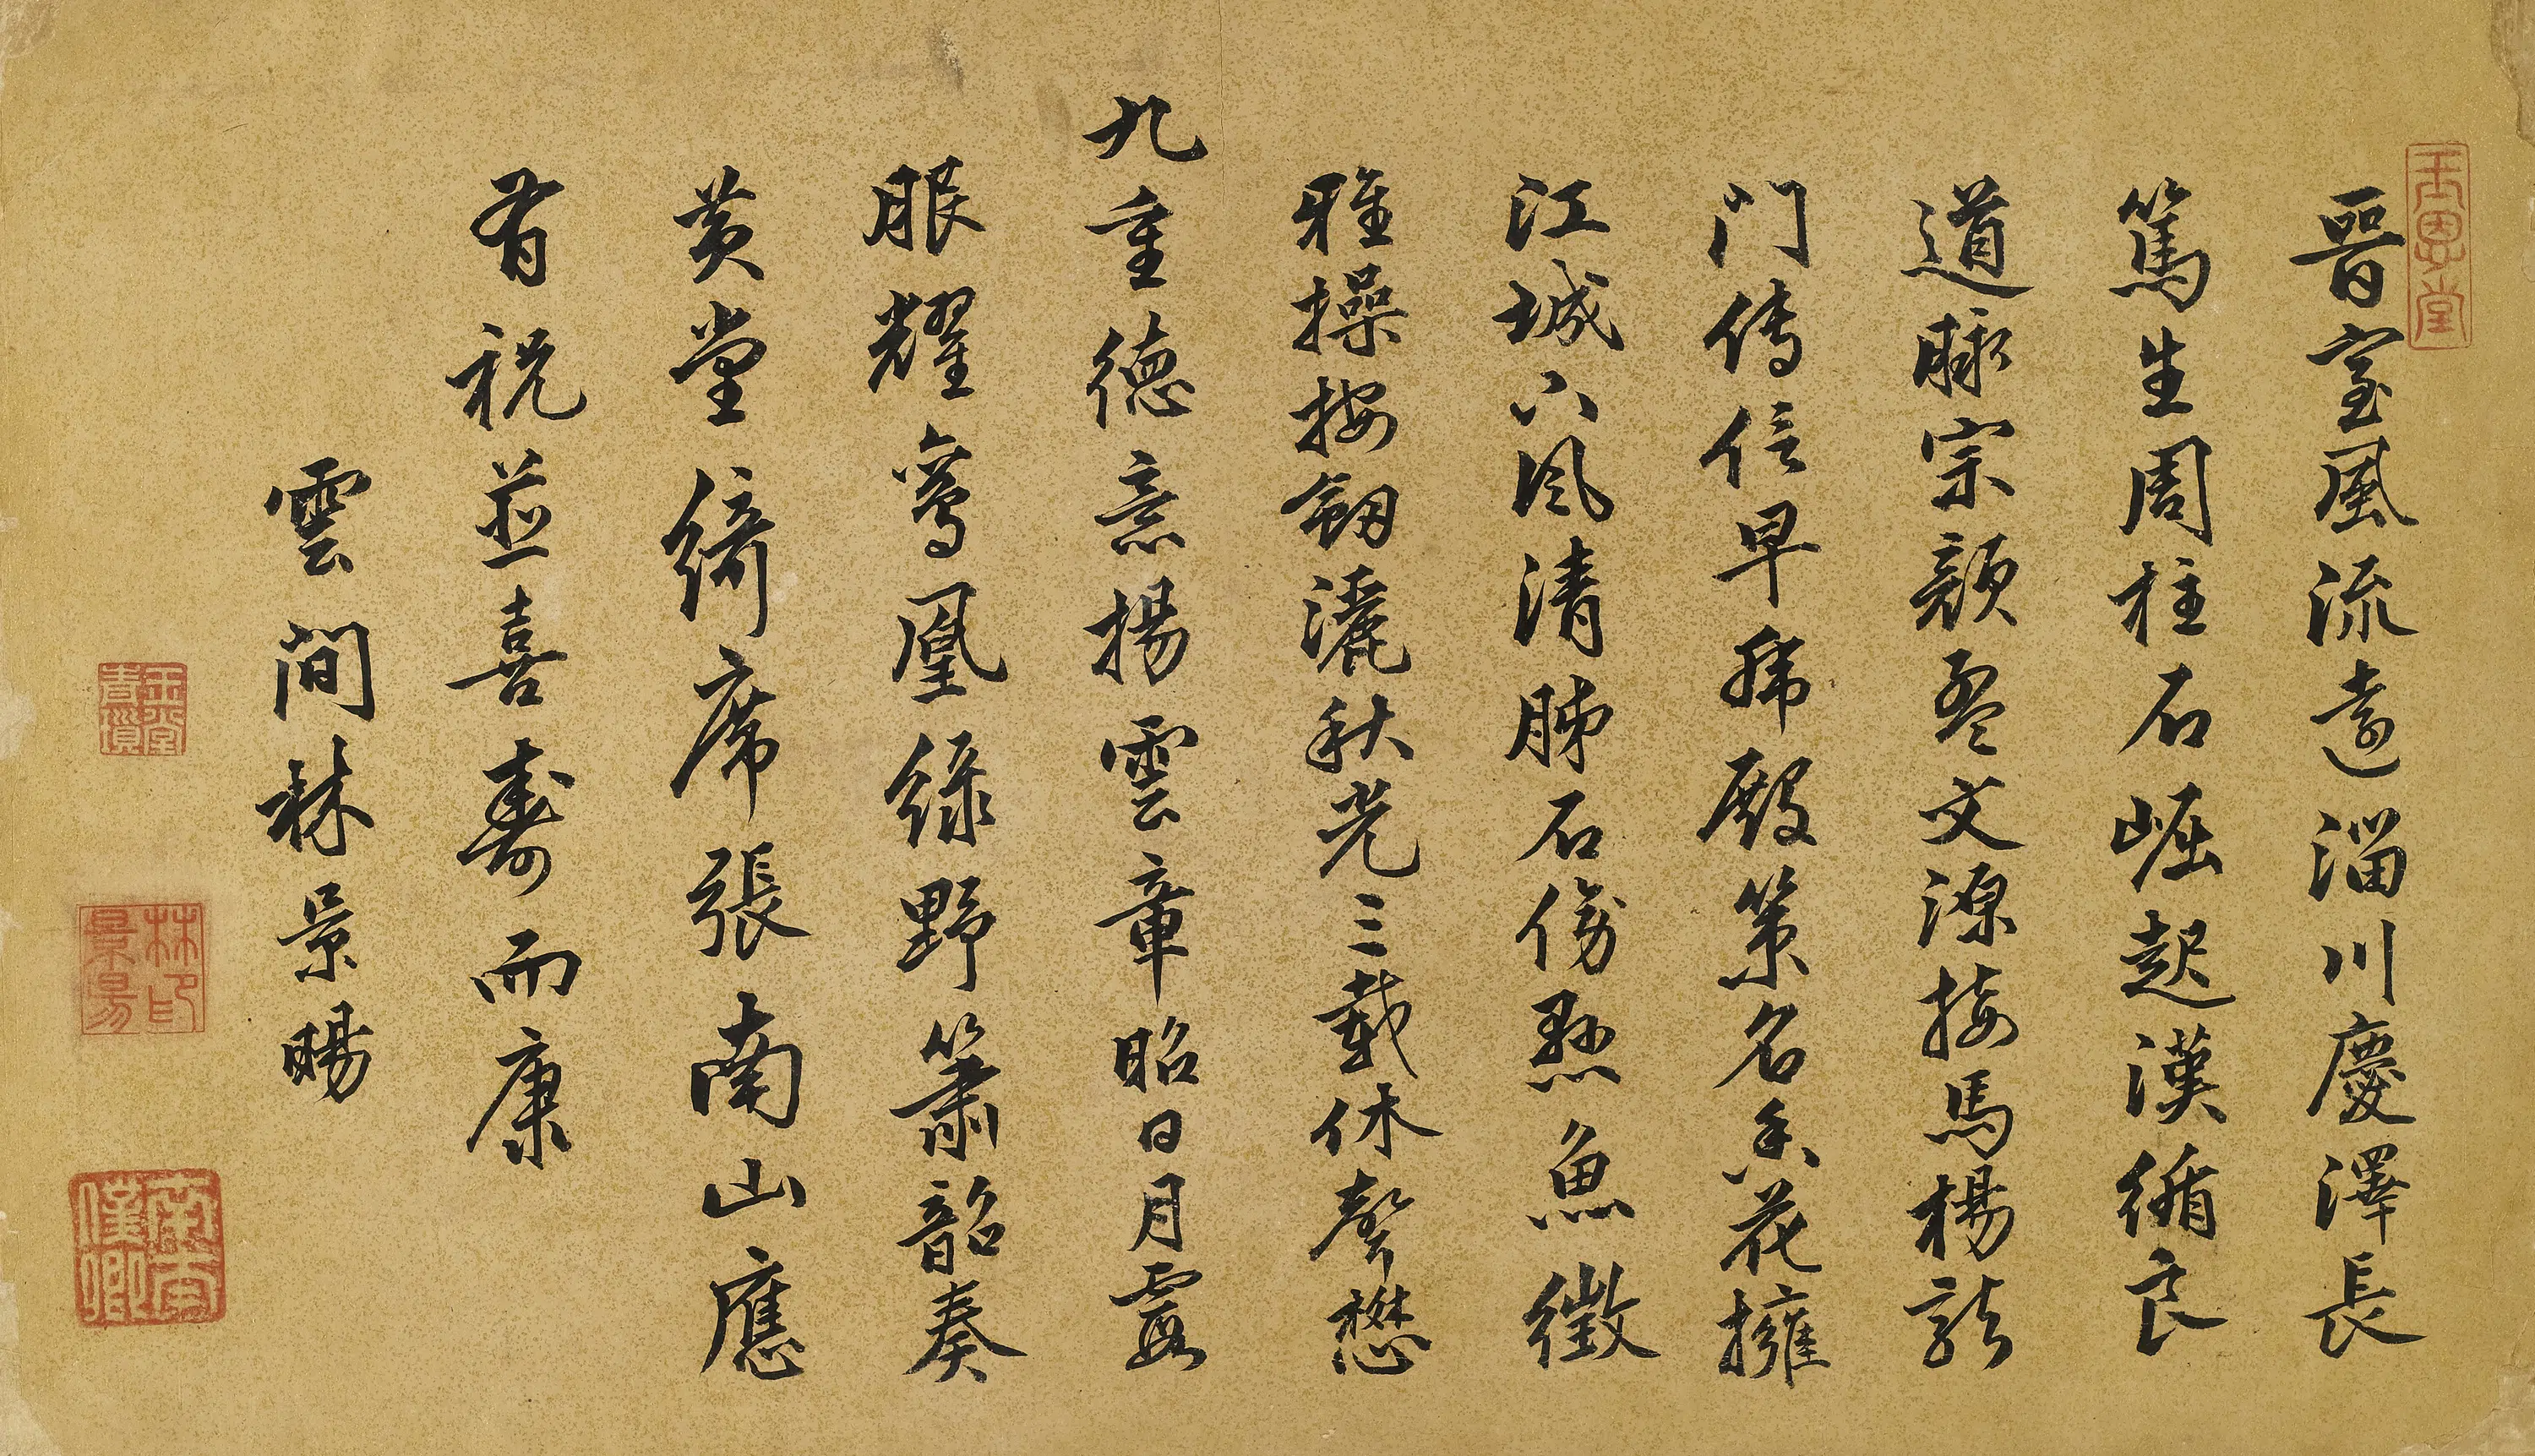 玉恩堂
晉室風流遠淄川慶澤長
篤生周柱石崛起漢循良
道脉宗顏孟文源接馬楊龍
門傳信早殿策名香花擁
江城下風清肺石傍懸魚徵
雅操按釼灑秋光三載休聲懋
九重德意揚雲章昭日月霞
服耀鸞凰綠野簫韶奏
黃堂綺席張南山應
有祝並喜壽而康
雲間林景暘
林景暘印